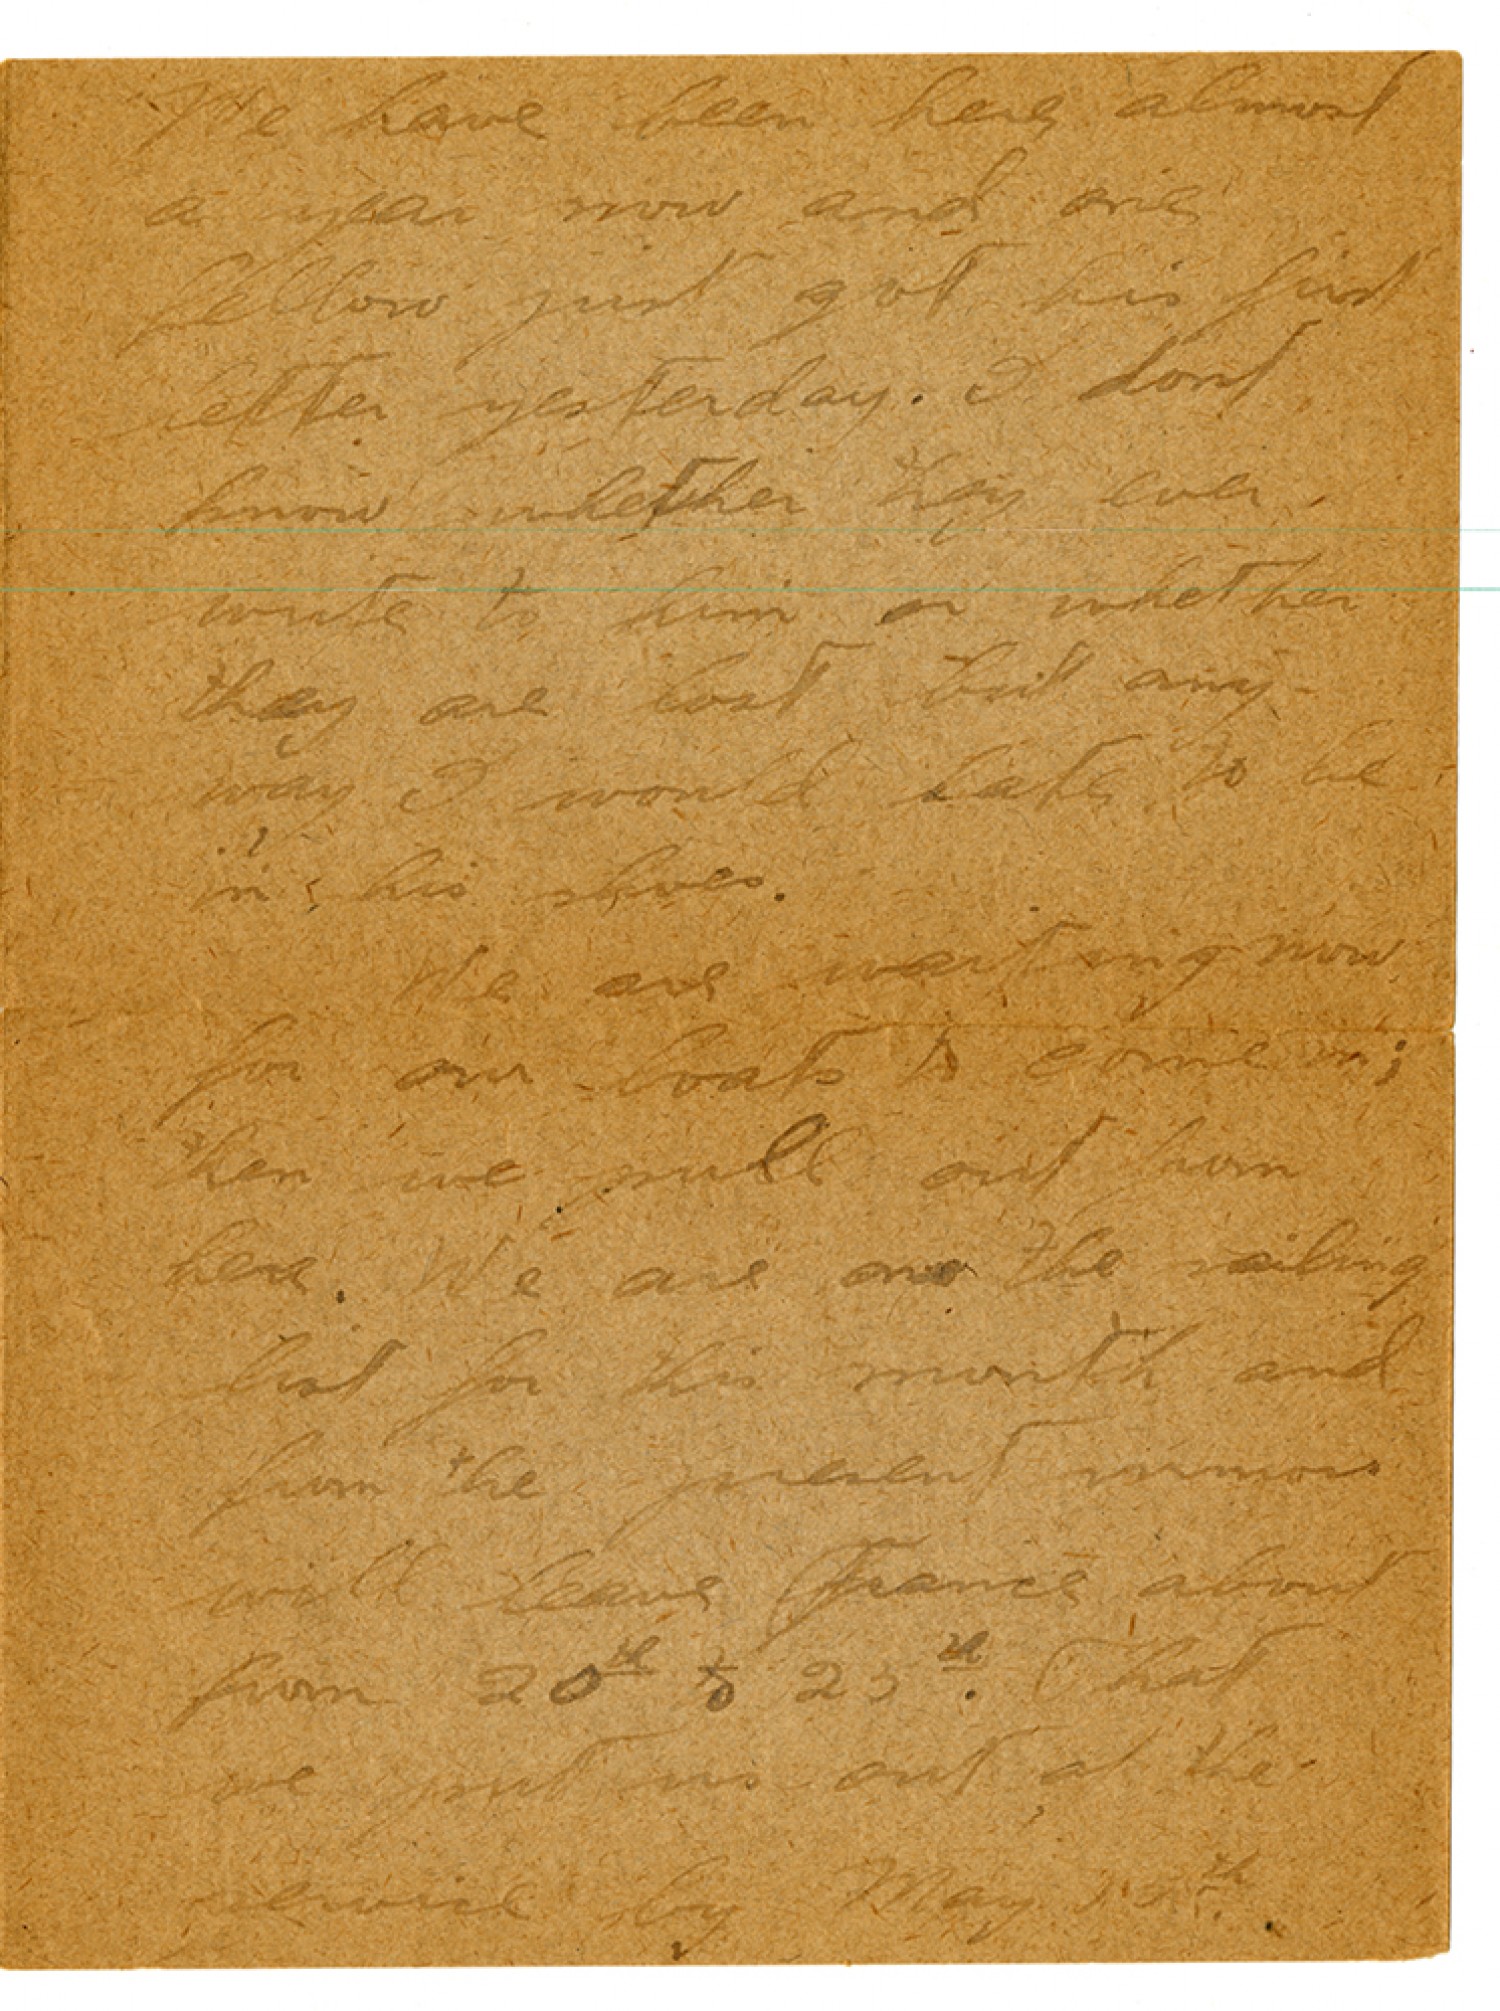 We have been here almost
a year now and one
fellow just got his first
letter yesterday. I dont
know whether they ever
write to him or whether
they are lost but any-
way I would hate to be
in his shoes.
We are waiting now
for our boats to come in;
then we pull out from
here. We are on the sailing
list for this month and
from the present rumors
will leave France about
from 20th to 25th. That
we put us out of the
service by May